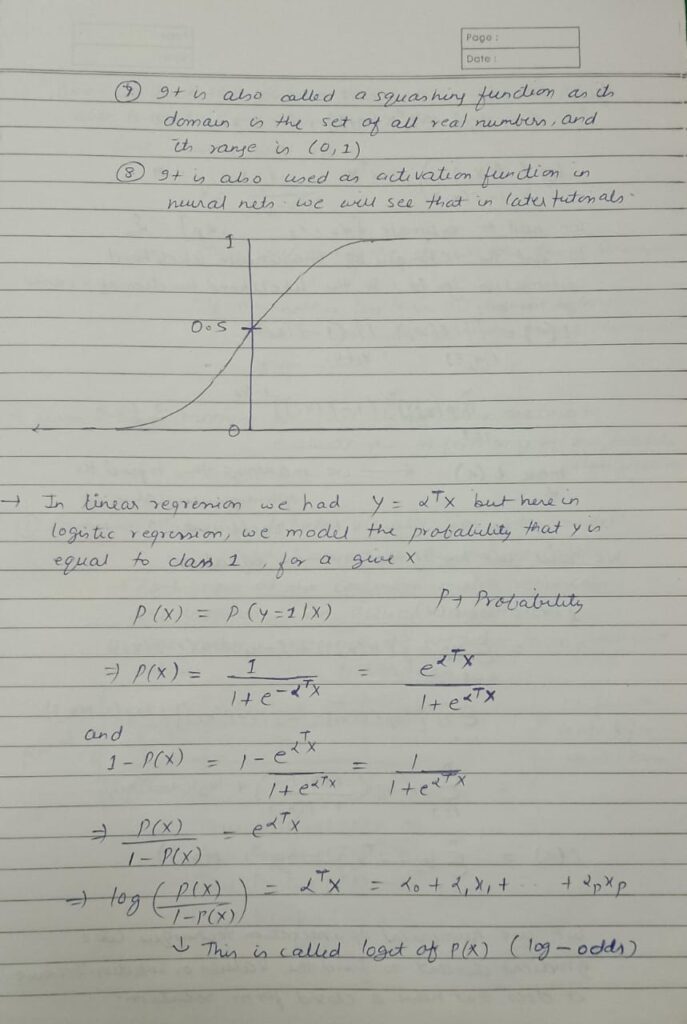 Page :
Date :
⑦ It is also called a squashing function as its
domain is the set of all real numbers, and
its range is (0,1)
⑧ It is also used as activation function in
neural nets. we will see that in later tutorials.
1
0.5
0
→ In linear regression we had y = α^T x but here in
logistic regression, we model the probability that y is
equal to class 1, for a give X
P(X) = P(y=1/X) P → Probability
⇒ P(X) = 1/(1+e^-α^T X) = e^α^T X/(1+e^α^T X)
and
1 - P(X) = 1 - e^α^T X/(1+e^α^T X) = 1/(1+e^α^T X)
⇒ P(X)/(1-P(X)) = e^α^T X
⇒ log (P(X)/(1-P(X))) = α^T X = α₀ + α₁x₁ + ... + αₚxₚ
↓ This is called logit of P(X) (log-odds)